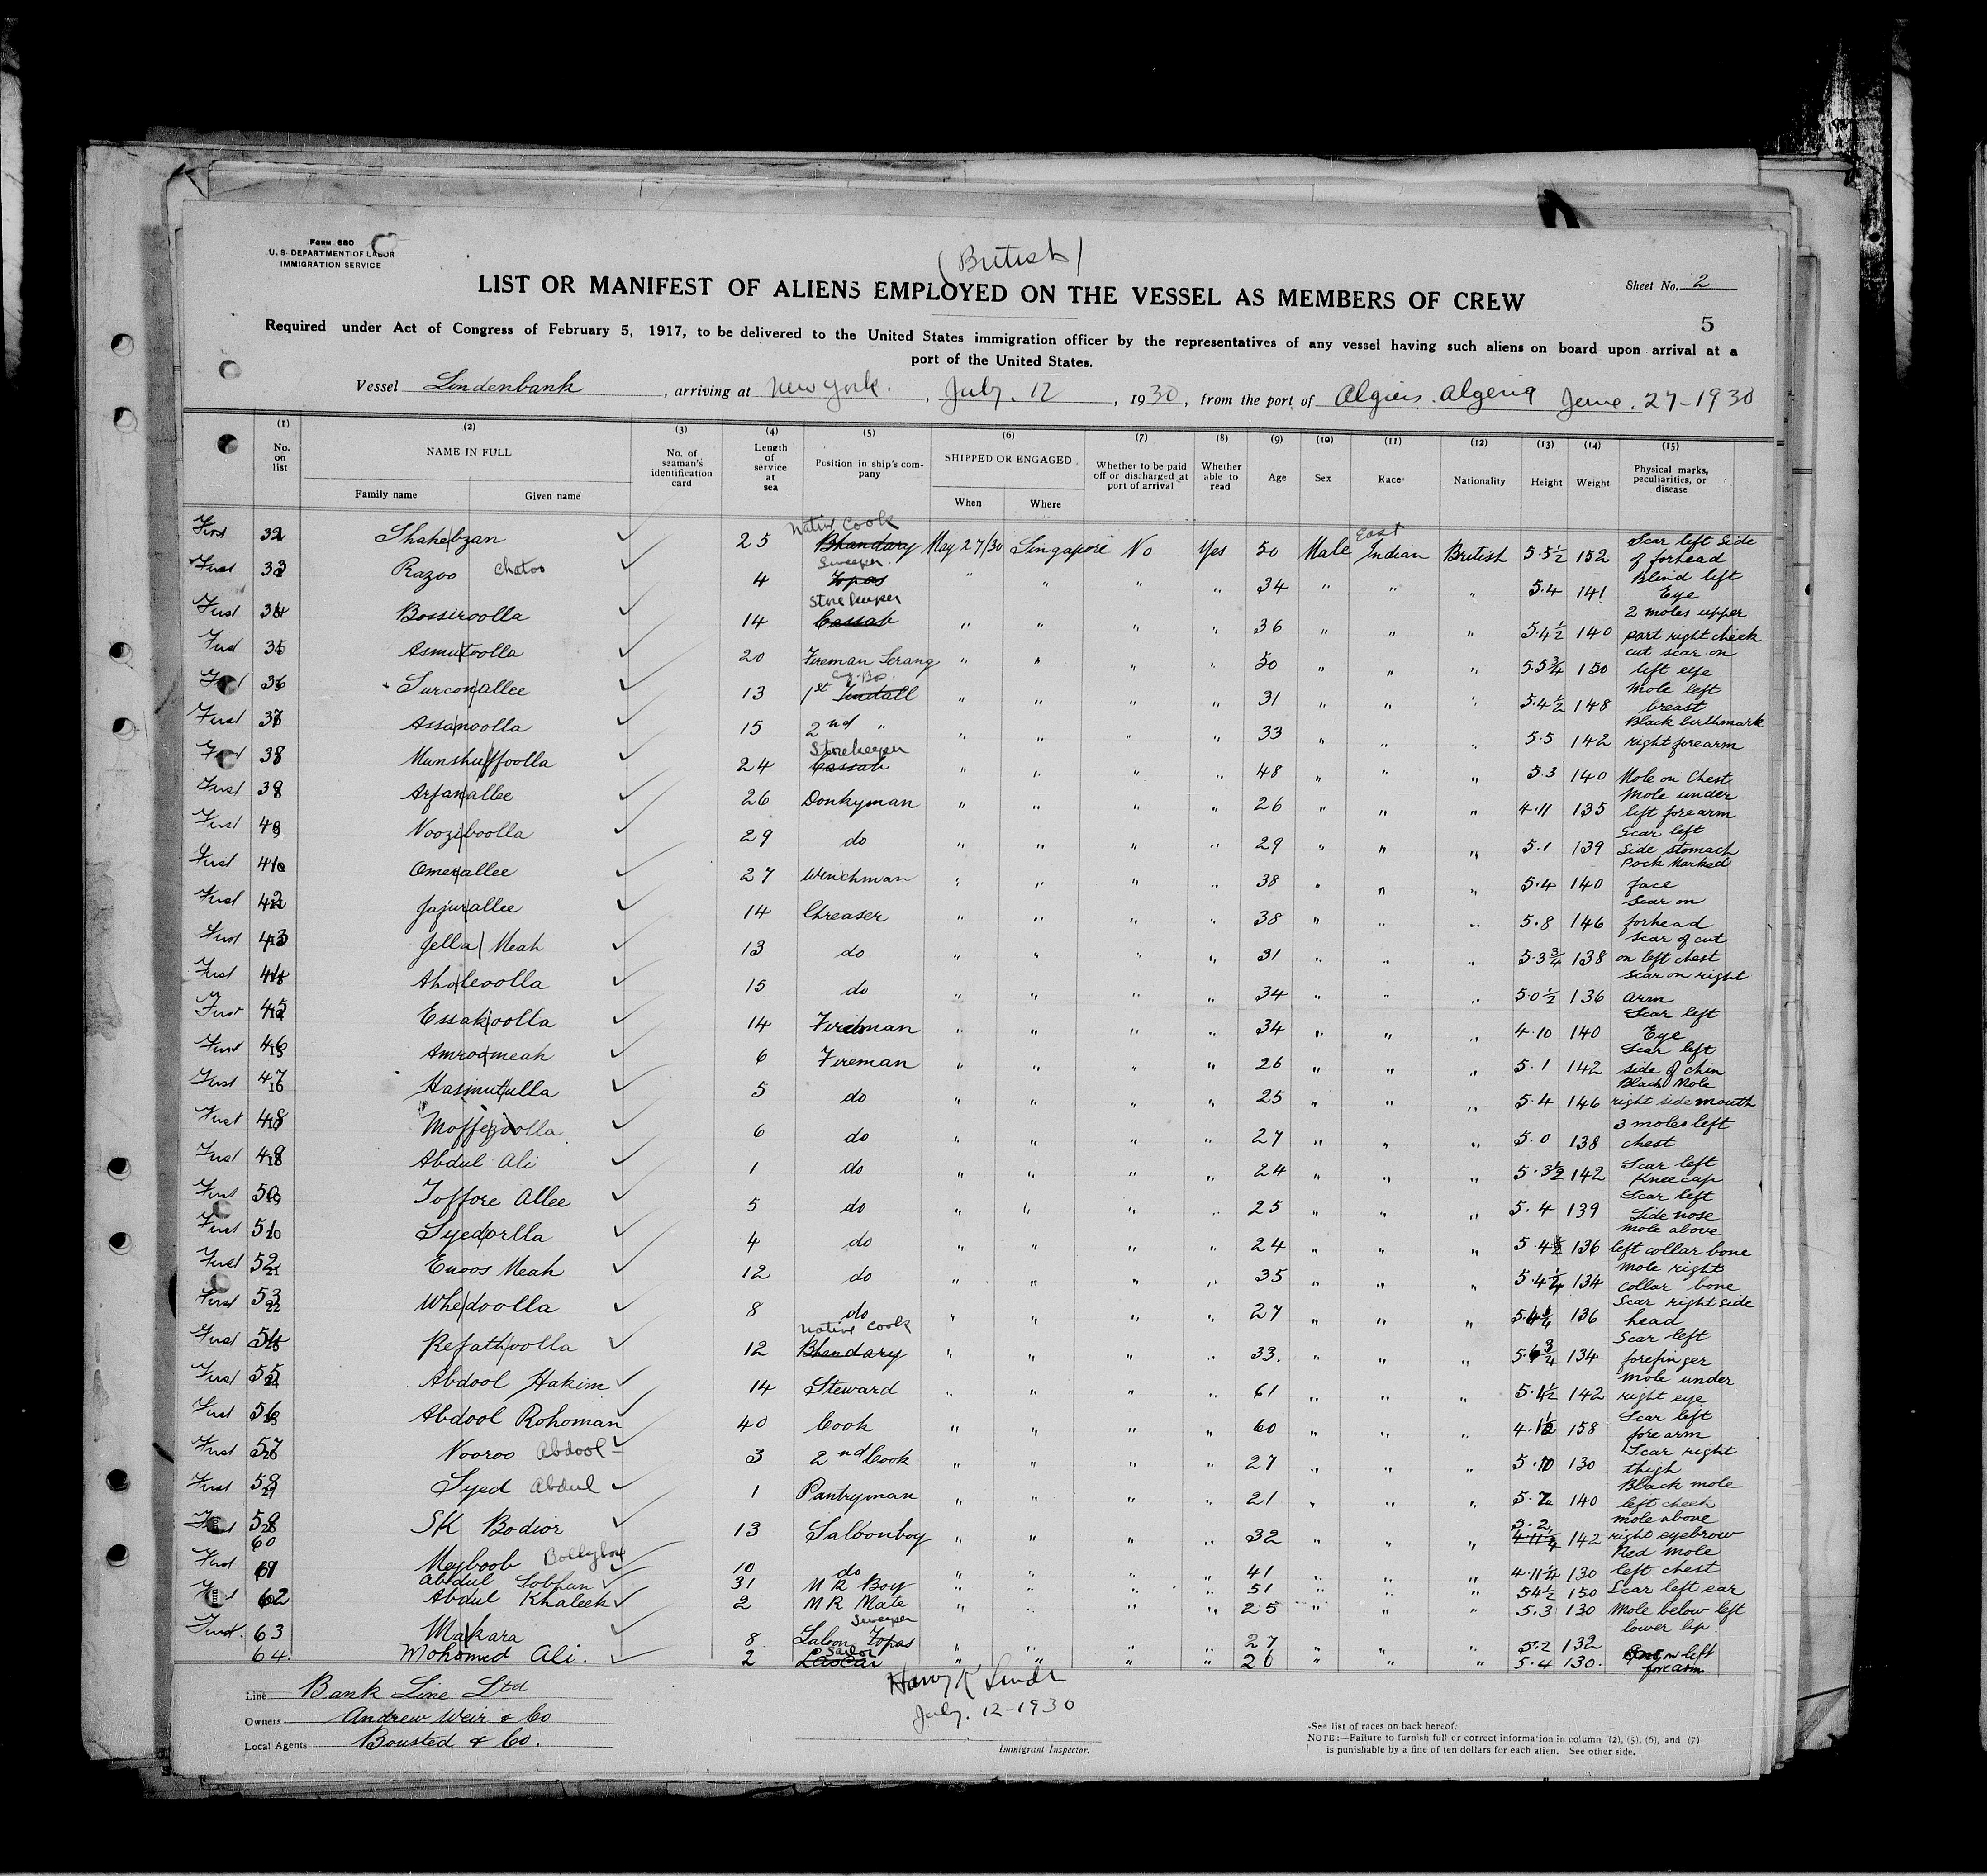 Form 680
U. S. DEPARTMENT OF LABOR
IMMIGRATION SERVICE
(British)
LIST OR MANIFEST OF ALIENS EMPLOYED ON THE VESSEL AS MEMBERS OF CREW
Sheet No. 2
5
Required under Act of Congress of February 5, 1917, to be delivered to the United States immigration officer by the representatives of any vessel having such aliens on board upon arrival at a
port of the United States.
Vessel Lindenbank, arriving at New York., July. 12, 1930, from the port of Algiers. Algeria June. 27-1930
(1) (2) (3) (4) (5) (6) (7) (8) (9) (10) (11) (12) (13) (14) (15)
No. on list NAME IN FULL Family name Given name No. of seaman's identification card Length of service at sea Position in ship's company SHIPPED OR ENGAGED When Where Whether to be paid off or discharged at port of arrival Whether able to read Age Sex Race Nationality Height Weight Physical marks, peculiarities, or disease
First 32 Shahebzan 25 Native Cook Bhandary May 27/30 Singapore No Yes 50 Male East Indian British 5.5½ 152 Scar left side of forhead
First 33 Razoo Chatoo 4 Sweeper Topas " " " " 34 " " " 5.4 141 Blind left Eye
First 34 Bossiroolla 14 Store keeper Cassab " " " " 36 " " " 5.4½ 140 2 moles upper part right cheek
First 35 Asmutoolla 20 Fireman Serang " " " " 50 " " " 5.5¾ 150 cut scar on left eye
First 36 Surconallee 13 1st Tindall " " " " 31 " " " 5.4½ 148 Mole left breast
First 37 Assanoolla 15 2nd " " " " " 33 " " " 5.5 142 Black birthmark right forearm
First 38 Munshuffoolla 24 Storekeeper Cassab " " " " 48 " " " 5.3 140 Mole on Chest
First 39 Arfanallee 26 Donkyman " " " " 26 " " " 4.11 135 Mole under left forearm
First 40 Nooziboolla 29 do " " " " 29 " " " 5.1 139 Scar left Side stomach
First 41 Omerallee 27 Winchman " " " " 38 " " " 5.4 140 Pock Marked face
First 42 Jajurallee 14 Greaser " " " " 38 " " " 5.8 146 Scar on forhead
First 43 Jella Meah 13 do " " " " 31 " " " 5.3¾ 138 Scar of cut on left chest
First 44 Aholeoolla 15 do " " " " 34 " " " 5.0½ 136 Scar on right arm
First 45 Essakoolla 14 Fireman " " " " 34 " " " 4.10 140 Scar left Eye
First 46 Amroomeah 6 Fireman " " " " 26 " " " 5.1 142 Scar left side of chin
First 47 Hasmutulla 5 do " " " " 25 " " " 5.4 146 Black Mole right side mouth
First 48 Moffezoolla 6 do " " " " 27 " " " 5.0 138 3 moles left chest
First 49 Abdul Ali 1 do " " " " 24 " " " 5.3½ 142 Scar left Kneecap
First 50 Toffore Allee 5 do " " " " 25 " " " 5.4 139 Scar left Side nose
First 51 Syedorlla 4 do " " " " 24 " " " 5.4½ 136 Mole above left collar bone
First 52 Enoos Meah 12 do " " " " 35 " " " 5.4¼ 134 Mole right collar bone
First 53 Whedoolla 8 do " " " " 27 " " " 136 Scar right side head
First 54 Refathoolla 12 Native Cook Bhandary " " " " 33. " " " 134 Scar left forefinger
First 55 Abdool Hakim 14 Steward " " " " 61 " " " 142 Mole under right eye
First 56 Abdool Rohoman 40 Cook " " " " 60 " " " 158 Scar left forearm
First 57 Nooroo Abdool 3 2nd Cook " " " " 27 " " " 5.10 130 Scar right thigh
First 58 Syed Abdul 1 Pantryman " " " " 21 " " " 140 Black mole left cheek
First 59 SK Bodior 13 Saloonboy " " " " 32 " " " 5.2 142 mole above right eyebrow
60 Meyboob 10 do " " " " 41 " " " 4.11¼ 130 Red mole left chest
First 61 Abdul Sobhan 31 M R Boy " " " " 51 " " " 5.4½ 150 Scar left ear
First 62 Abdul Khaleek 2 M R Mate " " " " 25 " " " 5.3 130 Mole below left lower lip.
First. 63 Makara 8 Saloon Topas Sweeper " " " " 27 " " " 5.2 132
64. Mohomed Ali. 2 Sailor Lascar " " " " 26 " " " 5.4 130. left forearm
Line Bank Line Ltd
Owners Andrew Weir & Co
Local Agents Bousted & Co.
Harry K
July. 12-1930
Immigrant Inspector.
See list of races on back hereof.
NOTE:—Failure to furnish full or correct information in column (2), (5), (6), and (7)
is punishable by a fine of ten dollars for each alien. See other side.